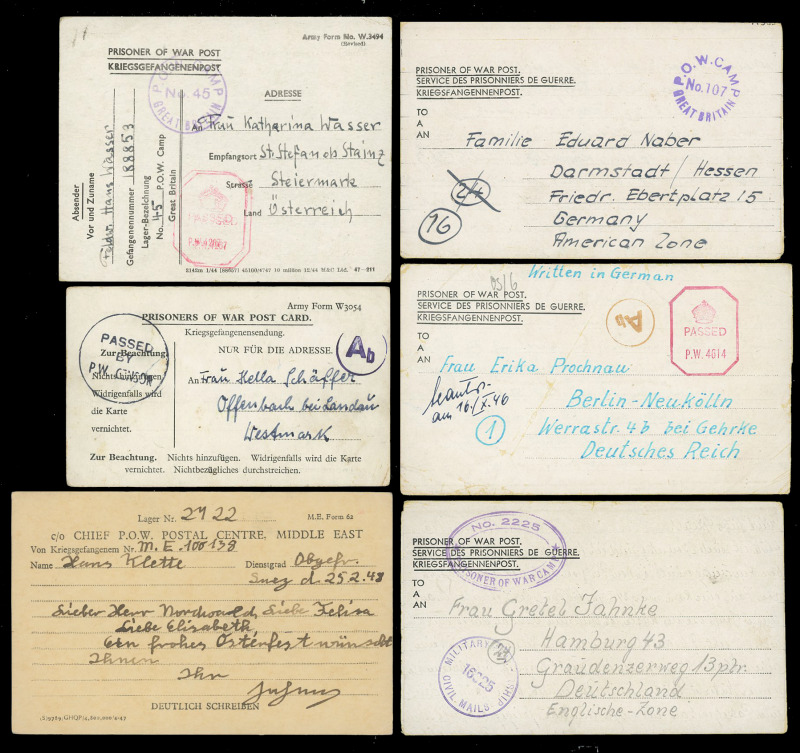 Army Form No. W.3494
(Revised)
PRISONER OF WAR POST
KRIEGSGEFANGENENPOST
P.O.W. CAMP
No. 45
GREAT BRITAIN
ADRESSE
An Frau Katharina Wasser
Empfangsort St. Stefan ob Stainz
Strasse Steiermark
Land Österreich
Absender
Vor und Zuname
Hans Wasser
Gefangenennummer 188853
Lager-Bezeichnung
No. 45 P.O.W. Camp
Great Britain
PASSED
P.W.
47-211
PRISONER OF WAR POST.
SERVICE DES PRISONNIERS DE GUERRE.
KRIEGSFANGENNENPOST.
P.O.W. CAMP
No. 107
GREAT BRITAIN
TO
A
AN
Familie Eduard Naber
Darmstadt / Hessen
Friedr. Ebertplatz 15
Germany
American Zone
2/4
16
Army Form W3054
PRISONERS OF WAR POST CARD.
Kriegsgefangenensendung.
PASSED
BY
P.W. CENSOR
Ab
Zur Beachtung.
Nichts hinzufügen.
Widrigenfalls wird
die Karte
vernichtet.
NUR FÜR DIE ADRESSE.
An Frau Hella Schäffer
Offenbach bei Landau
Westmark
Zur Beachtung. Nichts hinzufügen. Widrigenfalls wird die Karte
vernichtet. Nichtbezügliches durchstreichen.
Written in German
PRISONER OF WAR POST.
SERVICE DES PRISONNIERS DE GUERRE.
KRIEGSFANGENNENPOST.
Ab
PASSED
P.W. 4614
TO
A
AN
Frau Erika Prochnau
Berlin-Neukölln
Werrastr. 4b bei Gehrke
Deutsches Reich
am 16./X.46
1
Lager Nr. 2722
M.E. Form 62
c/o CHIEF P.O.W. POSTAL CENTRE, MIDDLE EAST
Von Kriegsgefangenem Nr. M.E. 100138
Name Hans Klette Dienstgrad Obgefr.
Suez d. 25.2.48
Lieber Herr Nordwald, Liebe Felisa
Liebe Elisabeth
Ein frohes Osterfest wünscht
Ihnen
Ihr
DEUTLICH SCHREIBEN
No. 2225
PRISONER OF WAR CAMP
PRISONER OF WAR POST.
SERVICE DES PRISONNIERS DE GUERRE.
KRIEGSFANGENNENPOST.
TO
A
AN
Frau Gretel Jahnke
Hamburg 43
Graudenzerweg 13 ptr.
Deutschland
Englische-Zone
MILITARY
16025
CIVIL MAILS